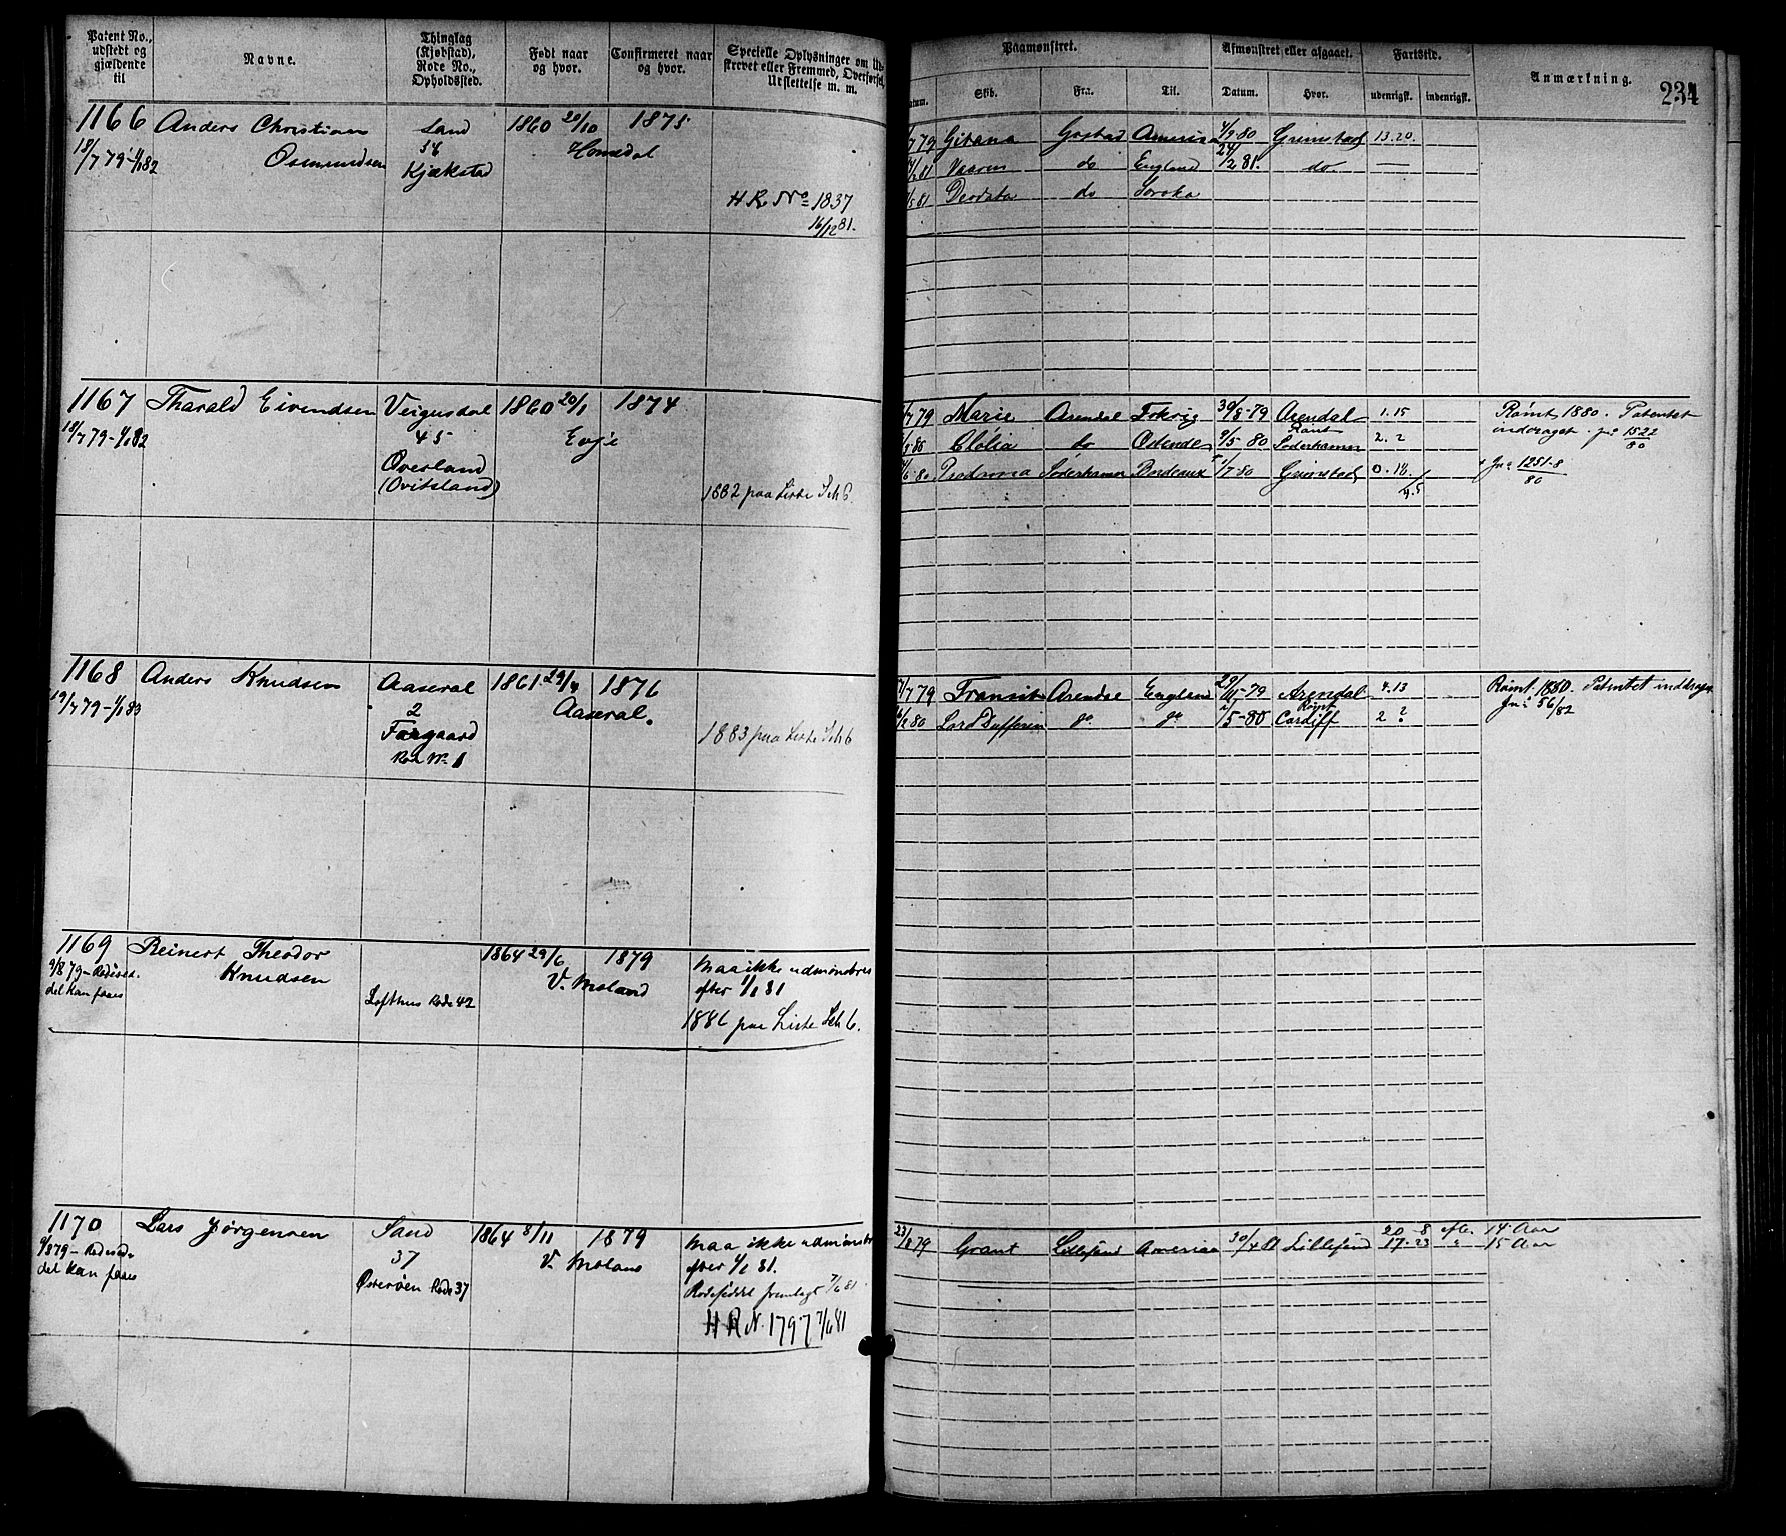 Patent No., udstedt og gjældende til
Navne.
Thinglag (Kjøbstad), Rode No., Opholdssted.
Født naar og hvor.
Confirmeret naar og hvor.
Specielle Oplysninger om Udskrevet eller Fremmed, Overførsel, Udslettelse m. m.
Paamønstret.
Datum.
Skib.
Fra.
Til.
Afmønstret eller afgaaet.
Datum.
Hvor.
Fartstid.
udenrigsk.
indenrigsk.
Anmærkning.
234
1166 Anders Christian Sand 1860 20/10 1875
18/7 79-1/1 82 Osmundsen 38 Homedal
Kjækstad
H R No 1837
16/12 81.
/7 79 Gitana Gostad America 4/9 80 Grimstad 13.20.
/2 81 Vaaren do England 24/2 81. do. —
/5 81 Deodata do Soroka
1167 Tharald Eivendsen Veigusdal 1860 20/1 1874
18/7 79-1/1 82 45 Evje
Overland
(Ovitsland)
1882 paa Liste Sch 6.
/7 79 Marie Arendal 30/8-79 Arendal 1.15 Rømt 1880. Patentet
/5 80 Clølia do 9/5 80 Rømt Söderhamn 2. ? inddraget. jn: 1522/80
/6 80 Söderhamn Bordeaux /7-80 Grimstad 0.18. Jn: 1251-8/80
1168 Anders Knudsen Aaseral 1861 29/4 1876
19/7 79-1/1 83 2 Aaseral.
Fargaard
Rode No 1
1883 paa Liste Sch 6
/7 79 Transit Arendal England 29/11-79 Arendal 4.13 Rømt 1880. Patentet inddraget
/2 80 Lord Dufferin do do /5-80 Rømt Cardiff 2 ? Jn: 56/82
1169 Reinert Theodor 1864 29/6 1879 Maa ikke udmønstres
9/8 79- Rodesed- Knudsen V. Moland efter 1/1 81
del kan faaes Lofthus Rode 42
1886 paa Liste Sch 6.
1170 Lars Jørgensen Sand 1864 8/11 1879 Maa ikke udmønstr
9/8 79- Rodesed- 37 V. Moland efter 1/1 81.
del kan faaes Østerøen Rode 37 Rodeseddel fremlagt 7/6 81
H R N. 1797 7/6 81
23/8 79 Grant Lillesand America 30/4 81 Lillesand 20-8 efter 14 Aar
17-23 " 15 Aar